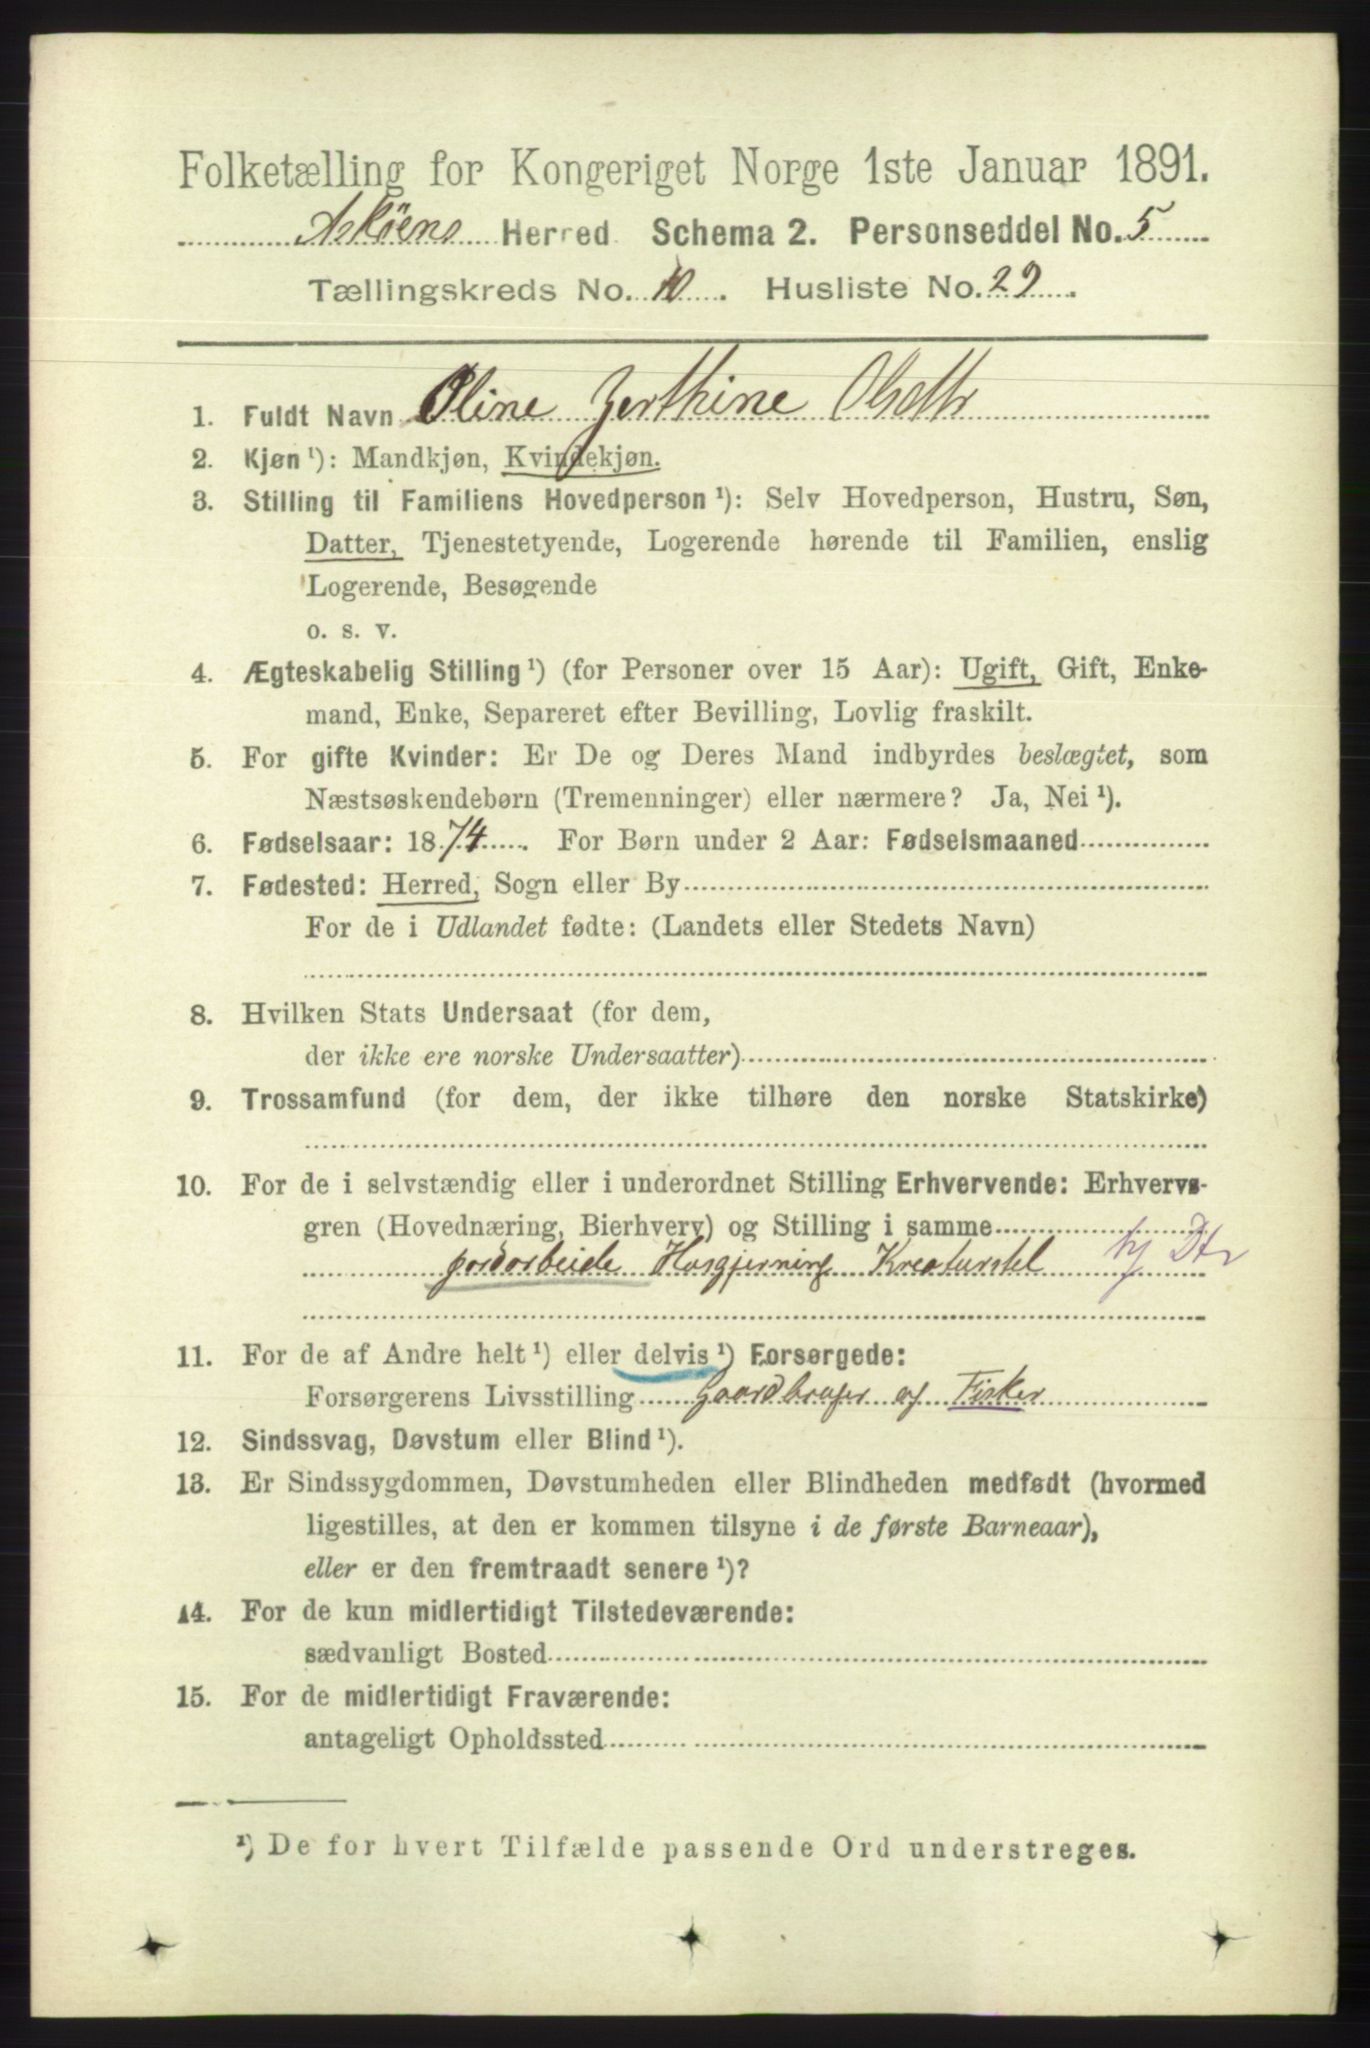 Folketælling for Kongeriget Norge 1ste Januar 1891.
Askøens Herred. Schema 2. Personseddel No. 5
Tællingskreds No. 10. Husliste No. 29.
1. Fuldt Navn Oline Zerthine Olsdtr
2. Kjøn ¹): Mandkjøn, Kvindekjøn.
3. Stilling til Familiens Hovedperson ¹): Selv Hovedperson, Hustru, Søn,
Datter, Tjenestetyende, Logerende hørende til Familien, enslig
Logerende, Besøgende
o. s. v.
4. Ægteskabelig Stilling ¹) (for Personer over 15 Aar): Ugift, Gift, Enke-
mand, Enke, Separeret efter Bevilling, Lovlig fraskilt.
5. For gifte Kvinder: Er De og Deres Mand indbyrdes beslægtet, som
Næstsøskendebørn (Tremenninger) eller nærmere? Ja, Nei ¹).
6. Fødselsaar: 1874. For Børn under 2 Aar: Fødselsmaaned
7. Fødested: Herred, Sogn eller By
For de i Udlandet fødte: (Landets eller Stedets Navn)
8. Hvilken Stats Undersaat (for dem,
der ikke ere norske Undersaatter)
9. Trossamfund (for dem, der ikke tilhøre den norske Statskirke)
10. For de i selvstændig eller i underordnet Stilling Erhvervende: Erhvervs-
gren (Hovednæring, Bierhverv) og Stilling i samme
jordarbeide Husgjerning Kreaturstel tj Dtr
11. For de af Andre helt ¹) eller delvis ¹) Forsørgede:
Forsørgerens Livsstilling Gaardbruger og Fisker
12. Sindssvag, Døvstum eller Blind ¹).
13. Er Sindssygdommen, Døvstumheden eller Blindheden medfødt (hvormed
ligestilles, at den er kommen tilsyne i de første Barneaar),
eller er den fremtraadt senere ¹)?
14. For de kun midlertidigt Tilstedeværende:
sædvanligt Bosted
15. For de midlertidigt Fraværende:
antageligt Opholdssted
¹) De for hvert Tilfælde passende Ord understreges.